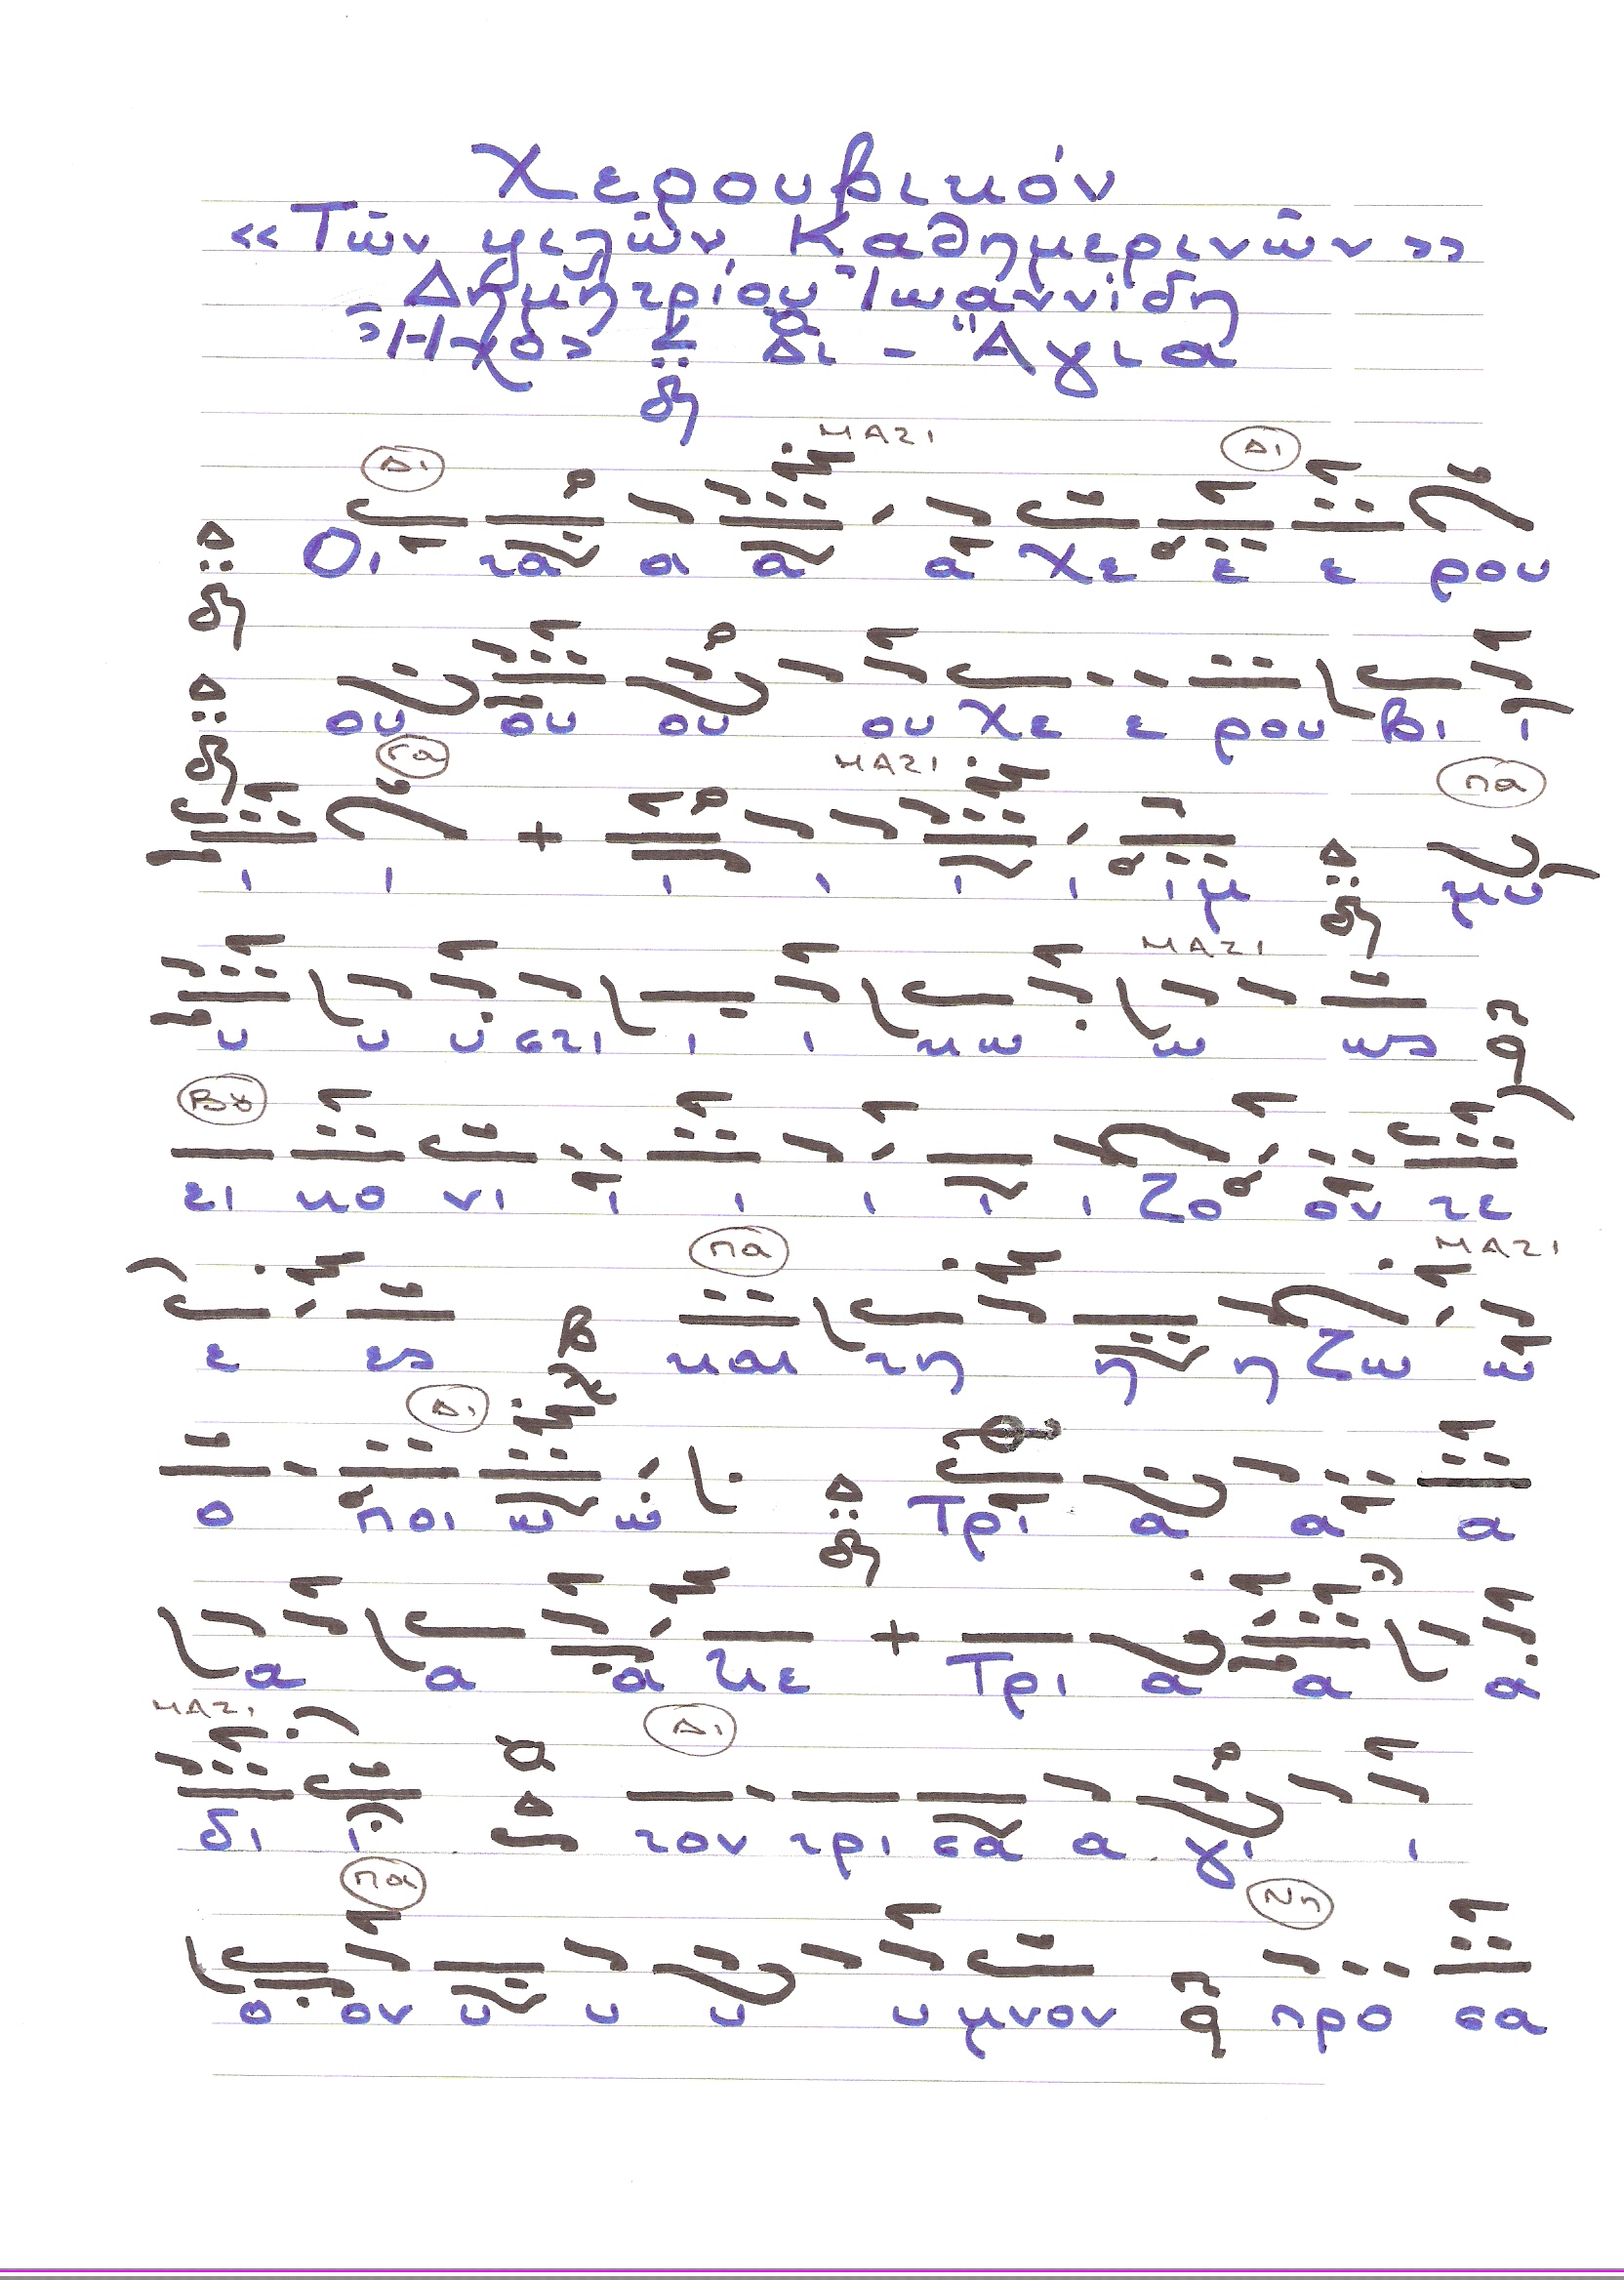 Χερουβικόν
«Τῶν ψιλῶν Καθημερινῶν»
Δημητρίου Ἰωαννίδη
Ἦχος Δι - Ἅγια
Δι ΜΑΖΙ Δι
Οι τα α α α χε ε ε ρου
ου ου ου ου χε ε ρου βι ι
Γα ΜΑΖΙ Πα
ι ι ι ι ι ι ιμ μυ
ΜΑΖΙ
υ υ υ στι ι ι κω ω ως
Βου
ει κο νι ι ι ι ι ι ζο ον τε
Πα ΜΑΖΙ
ε ες και τη η η ζω ω
Δι
ο ποι ω ω Τρι α α α
α α α κε Τρι α α α
ΜΑΖΙ Δι
δι ι τον τρι σα α γι ι
Πα Νη
ο ον υ υ υ υ μνον προ σα